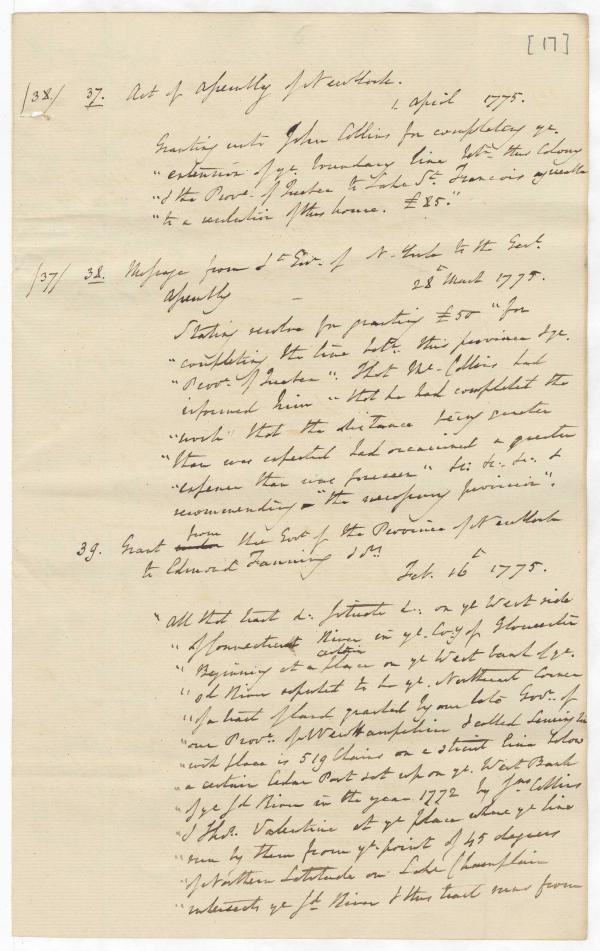 [17]
/38/ 37. Act of Assembly of New York.
1. April 1775.
Granting unto John Collins for completing ye.
"extention of ye. boundary line betn. this Colony
"& the Prove. of Quebec to Lake St. Francois agreeable
"to a resolution of this house. £85."
/37/ 38. Message from Lt Govr. of N. York to the Genl.
Assembly – 28th March 1775.
Stating resolve for granting £50 "for
"completing the line betn. this province & ye.
"Prove. of Quebec". That Mr. Collins had
informed him "that he had completed the
"work" that the distance being greater
"than was expected had occasioned a greater
"expense than was foreseen" &c: &c: &c: &
recommending – "the necessary provision".
39. Grant from the Govt of the Province of New York
to Edmund Fanning & Ors
Feb. 16th 1775.
"All that tract &c: situate &c: on ye West side
"of Connecticut River in ye. Coy of Gloucester
"Beginning at a certain place on ye West bank of ye.
"sd River reputed to be ye. Northeast Corner
"of a tract of land granted by our late Govr. of
"our Prove. of New Hampshire & called
"wch place is 519 Chains on a strait line below
"a certain Cedar Post set up on ye. West Bank
"of ye sd River in the year 1772 by Jno Collins
"& Thos. Valentine at ye place where ye line
"run by them from ye. point of 45 degrees
"of Northern Latitude on Lake Champlain
"intersects ye sd River & this tract runs from